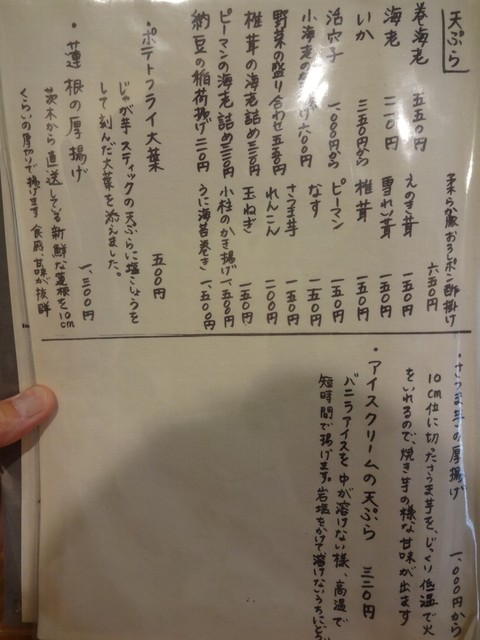 天ぷら
巻海老 五五0円
海老 二二0円
いか 三五0円から
活穴子 一、000円から
小海老のかき揚げ 六00円
野菜の盛り合わせ 五五0円
椎茸の海老詰め 三三0円
ピーマンの海老詰め 三三0円
納豆の稲荷揚げ 二二0円
柔らか豚おろしポン酢掛け 六五0円
えのき茸 一五0円
雪れい茸 一五0円
椎茸 一五0円
ピーマン 一五0円
なす 一五0円
さつま芋 一五0円
れんこん 二00円
玉ねぎ 一五0円
小柱のかき揚げ 一、五00円
うに海苔巻き 一、五00円
・ポテトフライ大葉 五00円
じゃが芋スティックの天ぷらに塩こしょうを
して刻んだ大葉を添えました。
・蓮根の厚揚げ 一、三00円
茨木から直送している新鮮な蓮根を、10cm
くらいの厚切で揚げます 食感、甘味が抜群
・さつま芋の厚揚げ 一、000円から
10cm位に切ったさつま芋を、じっくり低温で火
をいれるので、焼き芋の様な甘味が出ます
・アイスクリームの天ぷら 三三0円
バニラアイスを中が溶けない様、高温で
短時間で揚げます。岩塩をかけて溶けないうちにどう